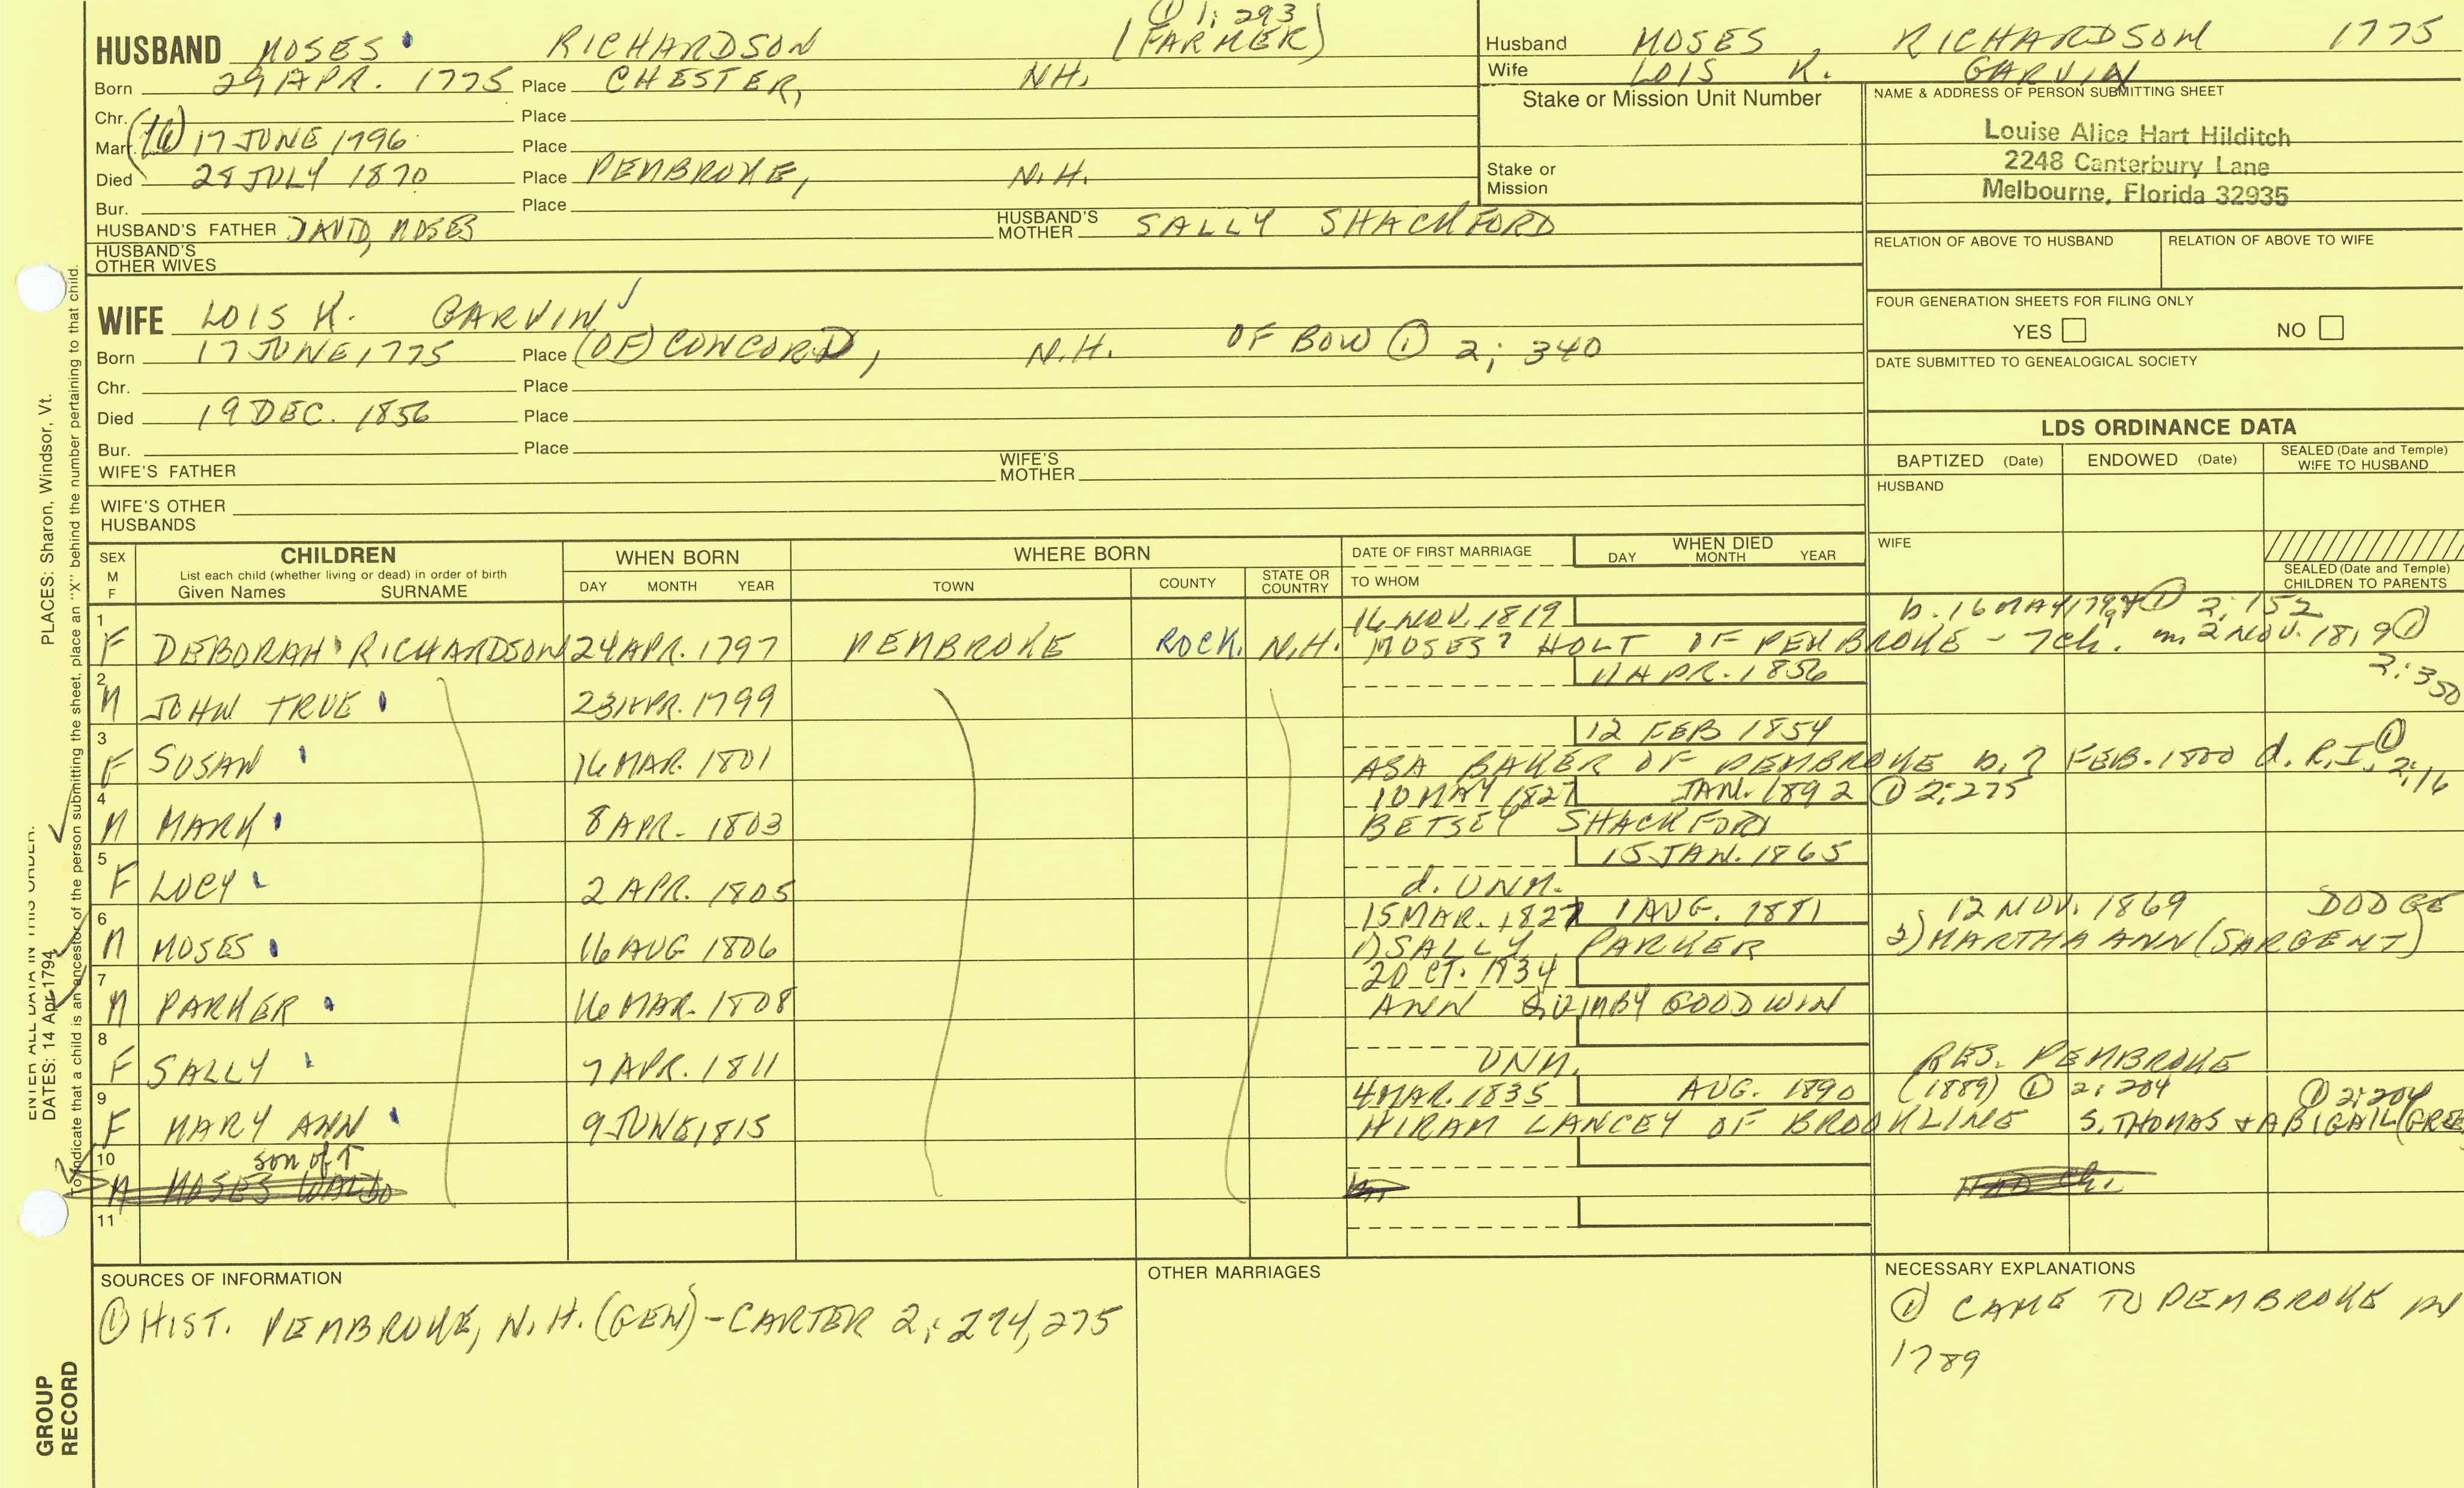 ① 1; 293
HUSBAND MOSES RICHARDSON (FARMER)
Born 29 APR. 1775 Place CHESTER, NH.
Chr. Place
Marr. 17 JUNE 1796 Place
Died 28 JULY 1870 Place PEMBROKE, N.H.
Bur. Place
HUSBAND'S FATHER DAVID MOSES HUSBAND'S MOTHER SALLY SHACKFORD
HUSBAND'S OTHER WIVES
WIFE LOIS K. GARVIN
Born 17 JUNE, 1775 Place (OF) CONCORD, N.H. OF BOW ① 2; 340
Chr. Place
Died 19 DEC. 1856 Place
Bur. Place
WIFE'S FATHER WIFE'S MOTHER
WIFE'S OTHER HUSBANDS
Husband MOSES, RICHARDSON 1775
Wife LOIS K. GARVIN
Stake or Mission Unit Number
Stake or Mission
NAME & ADDRESS OF PERSON SUBMITTING SHEET
Louise Alice Hart Hilditch
2248 Canterbury Lane
Melbourne, Florida 32935
RELATION OF ABOVE TO HUSBAND RELATION OF ABOVE TO WIFE
FOUR GENERATION SHEETS FOR FILING ONLY
YES NO
DATE SUBMITTED TO GENEALOGICAL SOCIETY
LDS ORDINANCE DATA
BAPTIZED (Date) ENDOWED (Date) SEALED (Date and Temple) WIFE TO HUSBAND
HUSBAND
WIFE
SEALED (Date and Temple) CHILDREN TO PARENTS
SEX M F
CHILDREN
List each child (whether living or dead) in order of birth
Given Names SURNAME
WHEN BORN
DAY MONTH YEAR
WHERE BORN
TOWN COUNTY STATE OR COUNTRY
DATE OF FIRST MARRIAGE
TO WHOM
WHEN DIED
DAY MONTH YEAR
1 16 NOV. 1819 b. 16 MAY ① 2; 152
F DEBORAH RICHARDSON 24 APR. 1797 PEMBROKE ROCK. N.H. MOSES? HOLT OF PEMBROKE - 7 ch. m 2 NOV. 1819 ①
2; 350
2 11 APR. 1856
M JOHN TRUE 23 APR. 1799
3 12 FEB 1854
F SUSAN 16 MAR. 1801 ASA BAKER OF PEMBROKE b. 7 FEB. 1800 d. R.I. ① 2; 16
4 10 MAY 1827 JAN. 1892 ① 2; 275
M MARK 8 APR. 1803 BETSEY SHACKFORD
5 15 JAN. 1865
F LUCY 2 APR. 1805 d. UNM.
6 15 MAR. 1827 1 AUG. 1881 12 NOV. 1869 DODGE
M MOSES 16 AUG 1806 1) SALLY PARKER 2) MARTHA ANN (SARGENT)
7 2 OCT. 1834
M PARKER 16 MAR. 1808 ANN QUIMBY GOODWIN
8
F SALLY 7 APR. 1811 UNM. RES. PEMBROKE
9 4 MAR. 1835 AUG. 1890 (1889) ① 2; 204 ① 2; 204
F MARY ANN 9 JUNE, 1815 HIRAM LANCEY OF BROOKLINE S. THOMAS + ABIGAIL
10 son of ↑
M MOSES WALDO HAD Ch.
11
SOURCES OF INFORMATION
① HIST. PEMBROKE, N.H. (GEN) - CARTER 2; 274, 275
OTHER MARRIAGES
NECESSARY EXPLANATIONS
① CAME TO PEMBROKE IN
1789
PLACES: Sharon, Windsor, Vt.
ENTER ALL DATA IN THIS ORDER:
DATES: 14 Apr 1794
To indicate that a child is an ancestor of the person submitting the sheet, place an "X" behind the number pertaining to that child.
GROUP
RECORD